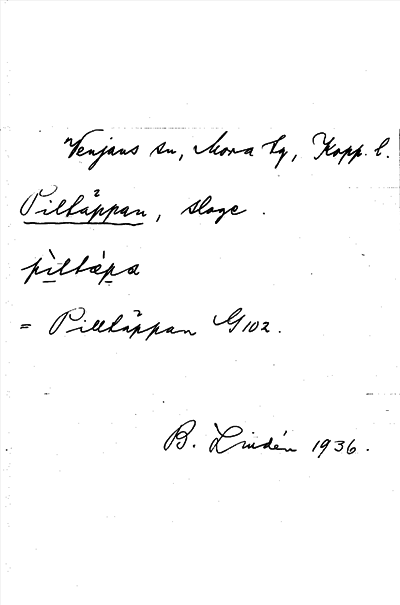 Venjans sn, Mora tg, Kopp. l.
Piltäppan, sloge.
pìltæ̀pa
= Pilltäppan G102.
B. Lindén 1936.